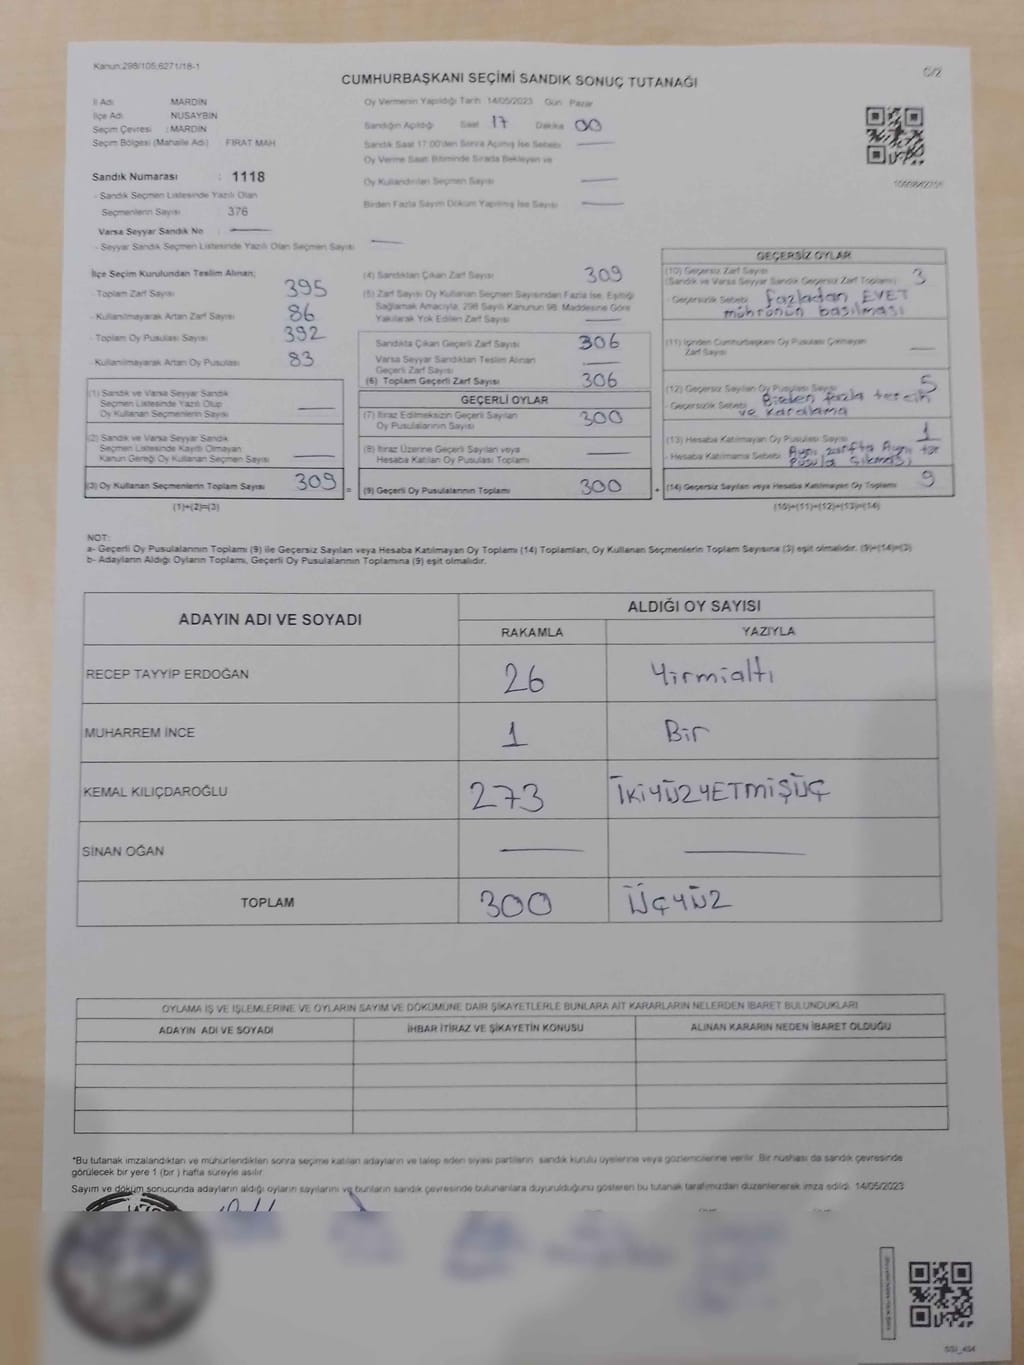 Kanun:298/105;6271/18-1
C/2
CUMHURBAŞKANI SEÇİMİ SANDIK SONUÇ TUTANAĞI
İl Adı MARDİN
İlçe Adı NUSAYBİN
Seçim Çevresi : MARDİN
Seçim Bölgesi (Mahalle Adı) FIRAT MAH
Sandık Numarası : 1118
- Sandık Seçmen Listesinde Yazılı Olan
Seçmenlerin Sayısı : 376
Varsa Seyyar Sandık No
- Seyyar Sandık Seçmen Listesinde Yazılı Olan Seçmen Sayısı
Oy Vermenin Yapıldığı Tarih 14/05/2023 Gün Pazar
Sandığın Açıldığı Saat 17 Dakika 00
Sandık Saat 17:00'den Sonra Açılmış İse Sebebi
Oy Verme Saati Bitiminde Sırada Bekleyen ve
Oy Kullandırılan Seçmen Sayısı
Birden Fazla Sayım Döküm Yapılmış İse Sayısı
İlçe Seçim Kurulundan Teslim Alınan;
- Toplam Zarf Sayısı 395
- Kullanılmayarak Artan Zarf Sayısı 86
- Toplam Oy Pusulası Sayısı 392
- Kullanılmayarak Artan Oy Pusulası 83
(1) Sandık ve Varsa Seyyar Sandık
Seçmen Listesinde Yazılı Olup
Oy Kullanan Seçmenlerin Sayısı
(2) Sandık ve Varsa Seyyar Sandık
Seçmen Listesinde Kayıtlı Olmayan
Kanun Gereği Oy Kullanan Seçmen Sayısı
(3) Oy Kullanan Seçmenlerin Toplam Sayısı 309 =
(1)+(2)=(3)
(4) Sandıktan Çıkan Zarf Sayısı 309
(5) Zarf Sayısı Oy Kullanan Seçmen Sayısından Fazla İse, Eşitliği
Sağlamak Amacıyla, 298 Sayılı Kanunun 98. Maddesine Göre
Yakılarak Yok Edilen Zarf Sayısı
Sandıkta Çıkan Geçerli Zarf Sayısı 306
Varsa Seyyar Sandıktan Teslim Alınan
Geçerli Zarf Sayısı
(6) Toplam Geçerli Zarf Sayısı 306
GEÇERLİ OYLAR
(7) İtiraz Edilmeksizin Geçerli Sayılan
Oy Pusulalarının Sayısı 300
(8) İtiraz Üzerine Geçerli Sayılan veya
Hesaba Katılan Oy Pusulası Toplamı
(9) Geçerli Oy Pusulalarının Toplamı 300 +
GEÇERSİZ OYLAR
(10) Geçersiz Zarf Sayısı 3
(Sandık ve Varsa Seyyar Sandık Geçersiz Zarf Toplamı)
- Geçersizlik Sebebi fazladan EVET
mührünün basılması
(11) İçinden Cumhurbaşkanı Oy Pusulası Çıkmayan
Zarf Sayısı
(12) Geçersiz Sayılan Oy Pusulası Sayısı 5
- Geçersizlik Sebebi Birden fazla tercih
ve karalama
(13) Hesaba Katılmayan Oy Pusulası Sayısı 1
- Hesaba Katılmama Sebebi Aynı zarfta Aynı tür
pusula çıkması
(14) Geçersiz Sayılan veya Hesaba Katılmayan Oy Toplamı 9
(10)+(11)+(12)+(13)=(14)
NOT:
a- Geçerli Oy Pusulalarının Toplamı (9) ile Geçersiz Sayılan veya Hesaba Katılmayan Oy Toplamı (14) Toplamları, Oy Kullanan Seçmenlerin Toplam Sayısına (3) eşit olmalıdır. (9)+(14)=(3)
b- Adayların Aldığı Oyların Toplamı, Geçerli Oy Pusulalarının Toplamına (9) eşit olmalıdır.
ADAYIN ADI VE SOYADI ALDIĞI OY SAYISI
RAKAMLA YAZIYLA
RECEP TAYYİP ERDOĞAN 26 Yirmialtı
MUHARREM İNCE 1 Bir
KEMAL KILIÇDAROĞLU 273 İKİYÜZYETMİŞÜÇ
SİNAN OĞAN
TOPLAM 300 ÜÇYÜZ
OYLAMA İŞ VE İŞLEMLERİNE VE OYLARIN SAYIM VE DÖKÜMÜNE DAİR ŞİKAYETLERLE BUNLARA AİT KARARLARIN NELERDEN İBARET BULUNDUKLARI
ADAYIN ADI VE SOYADI İHBAR İTİRAZ VE ŞİKAYETİN KONUSU ALINAN KARARIN NEDEN İBARET OLDUĞU
*Bu tutanak imzalandıktan ve mühürlendikten sonra seçime katılan adayların ve talep eden siyasi partilerin sandık kurulu üyelerine veya gözlemcilerine verilir. Bir nüshası da sandık çevresinde
görülecek bir yere 1 (bir) hafta süreyle asılır.
Sayım ve döküm sonucunda adayların aldığı oyların sayılarını ve bunların sandık çevresinde bulunanlara duyurulduğunu gösteren bu tutanak tarafımızdan düzenlenerek imza edildi. 14/05/2023